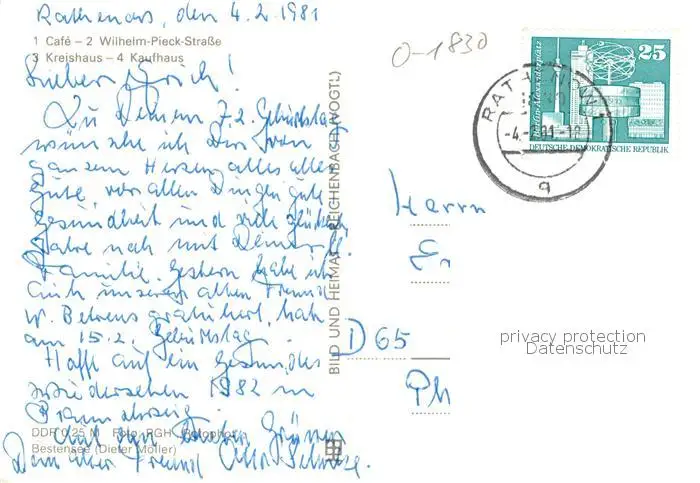 Rathenow, den 4.2.1981
1 Café – 2 Wilhelm-Pieck-Straße
3 Kreishaus – 4 Kaufhaus
Lieber Erich!
Zu Deinem 72. Geburtstag
wünsche ich Dir von
ganzem Herzen alles alles
Gute, vor allen Dingen gute
Gesundheit und viele glückliche
Jahre noch mit Deiner lb.
Familie. Gestern habe ich
auch unserem alten Freund
W. Behrens gratuliert, hat
am 15.2. Geburtstag.
Hoffe auf ein gesundes
Wiedersehen 1982 in
Braunschweig.
DDR 0,25 M Foto: PGH
Bestensee (Dieter Möller)
Dein alter Freund
BILD UND HEIMAT REICHENBACH (VOGTL)
0-1830
25
Berlin-Alexanderplatz
DEUTSCHE DEMOKRATISCHE REPUBLIK
RATHENOW
a
Herrn
D 65
privacy protection
Datenschutz